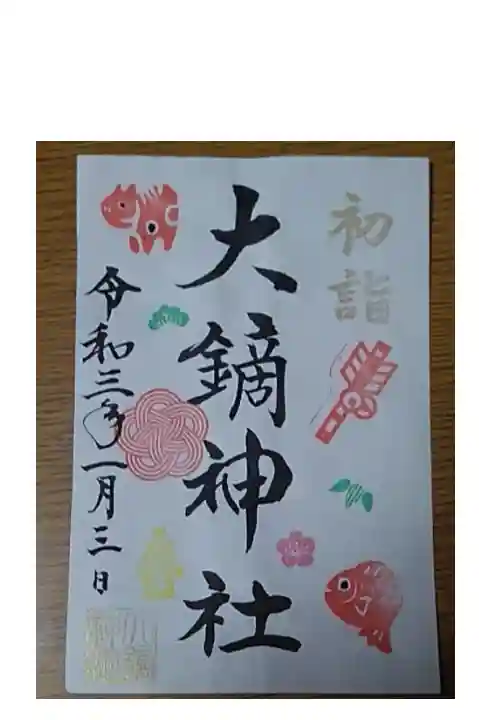 初詣
大鏑神社
令和三年一月三日